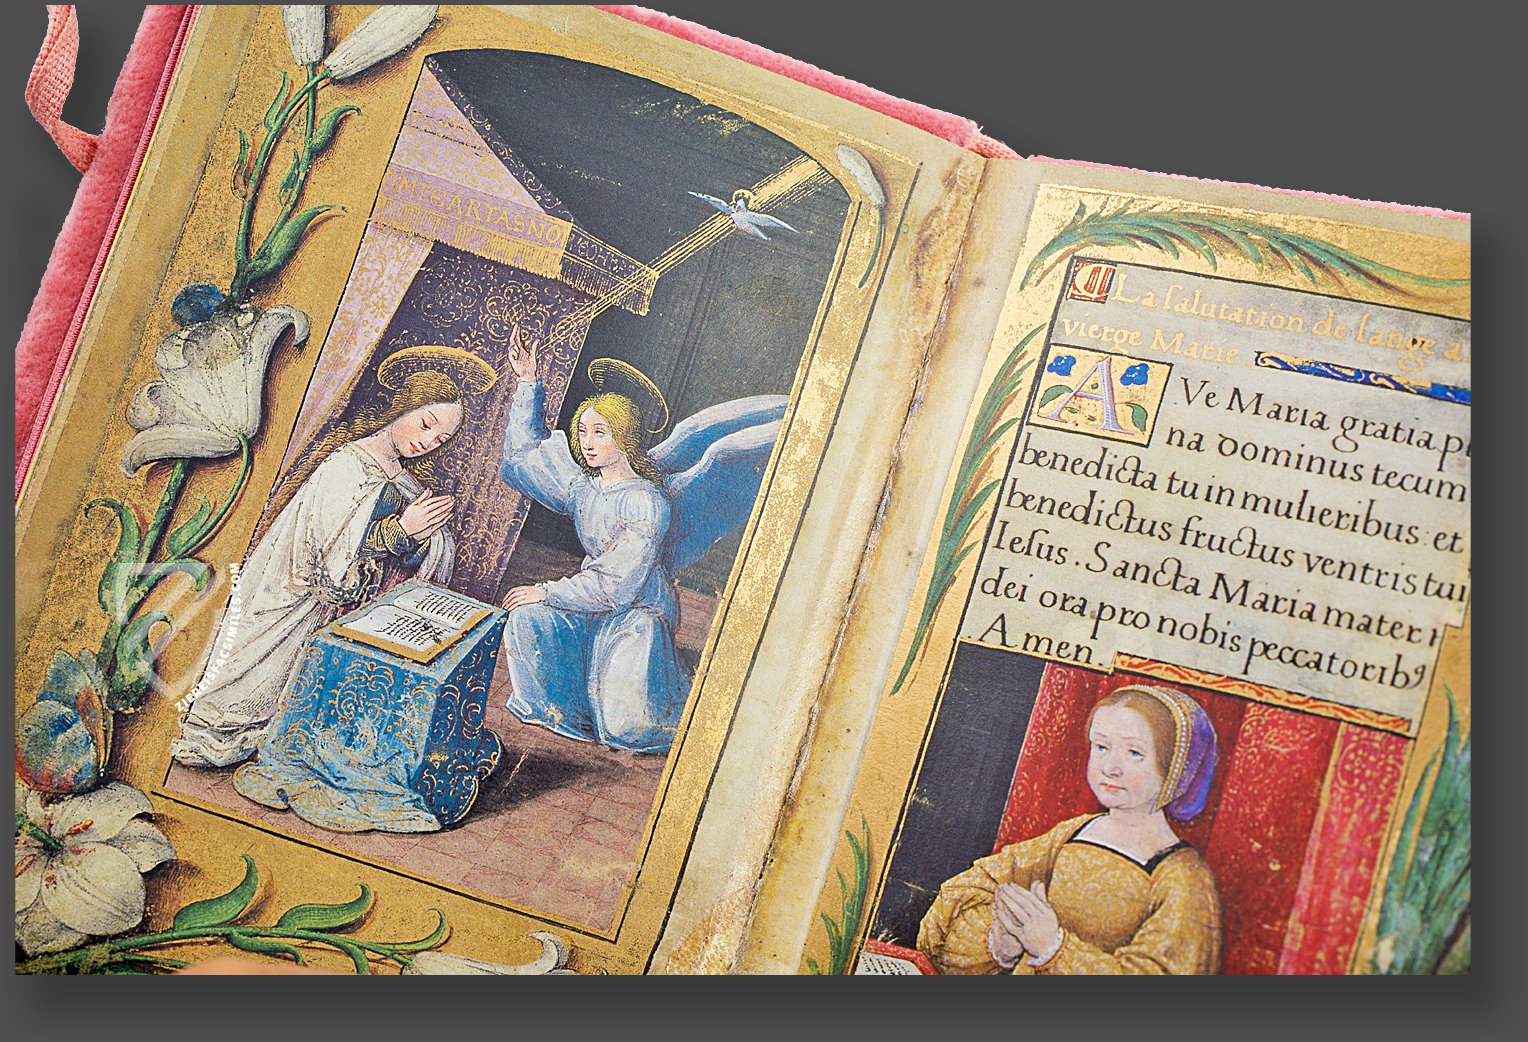 MTGARTASNO
La salutation de lange a
vierge Marie
AVe Maria gratia pl
na dominus tecum
benedicta tu in mulieribus: et
benedictus fructus ventris tui
Iesus. Sancta Maria mater
dei ora pro nobis peccatoribꝰ
Amen.
ZIEREISFACSIMILES.COM